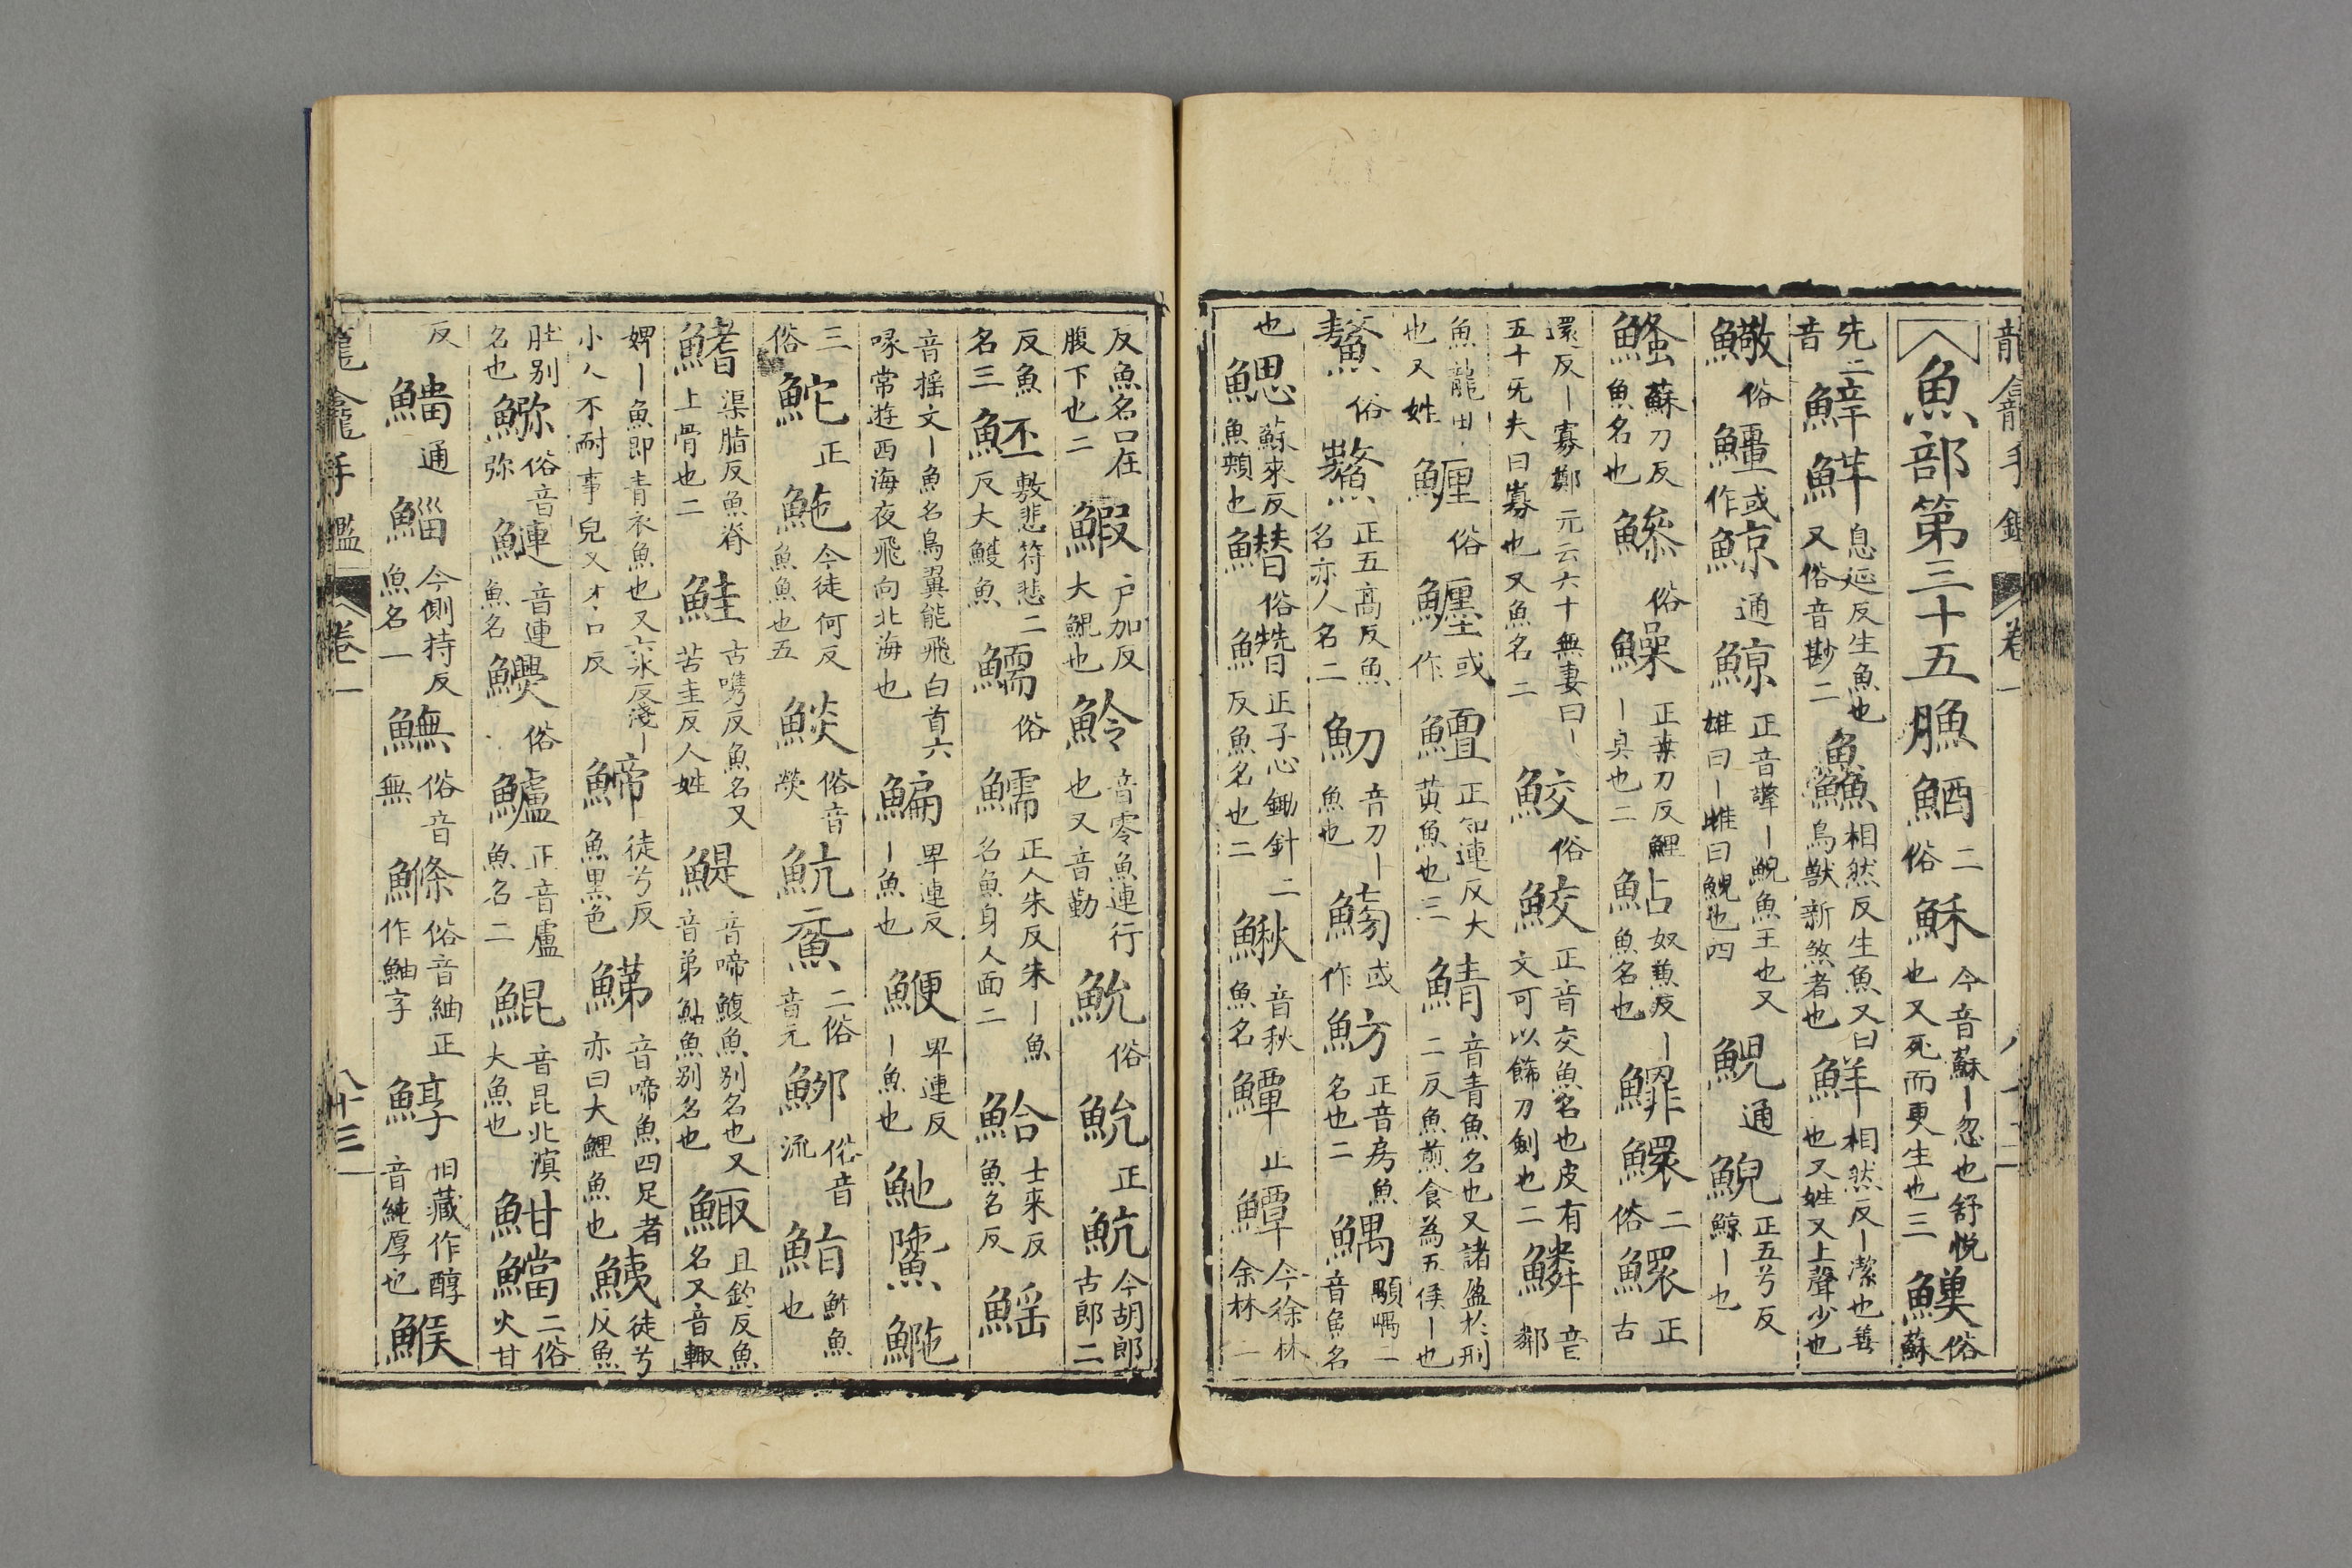 龍龕手鑑 卷一
魚部第三十五䲆䱇二俗穌今音蘇丨忽也舒悅也又死而更生也三俗蘇
先二音䱣鮮息延反生魚也又俗音尠二鱻相然反生魚又曰鳥獸新煞者也鮮相然反丨潔也善也又姓又上聲少也
俗鱷或作䲔通鯨正音擎丨鯢魚王也又雄曰丨雌曰鯢也四鯢通鯢正五兮反鯨丨也
鰠蘇刀反魚名也俗鱢正桒刀反鯉丨臭也二鮎奴兼反丨魚名也鰥二俗鰥正古
還反丨寡鄭元云六十無妻曰丨五十无夫曰寡也又魚名二鮫俗鮫正音交魚名也皮有文可以餙刀劍也二鱗音鄰
魚龍田也又姓俗或作鱣正知連反大黃魚也三鯖音青魚名也又諸盈於刑二反魚煎食為五侯丨也
鰲俗鰲正五高反魚名亦人名二魛音刀丨魚也或作魴正音房魚名也二鰅顒喁二音魚名
也鰓蘇來反魚頰也俗正子心鋤針二反魚名也二鰍音秋魚名鱏正鱏今徐林余林二
反魚名口在腹下也二鰕戶加反大鯤也魿音零魚連行也又音勤魧俗魧正魧今胡郎古郎二
反魚名三魾敷悲符悲二反大鱯魚鱬俗鱬正人朱反朱丨魚名魚身人面二鮯士來反魚名反䱾
音揺文丨魚名鳥翼能飛白首六喙常遊西海夜飛向北海也鯿卑連反丨魚也鯾卑連反丨魚也䱉
三俗鮀正䱉今徒何反魚魚也五䱊俗音燚魧二俗音元俗音流鮪鮓魚也
鰭渠脂反魚脊上骨也二鮭古㩗反魚名又苦圭反人姓鯷音啼鰒魚別名也又音弟鮎魚別名也鯫且鉤反魚名又音輙
婢丨魚即青衣魚也又六氷反淺丨小人不耐事皃又才口反䱱徒兮反魚黑色䱱音啼魚四足者亦曰大鯉魚也鮧徒兮反魚
肚別名也俗音弥鰱音連魚名俗鱸正音盧魚名二鯤音昆北溟大魚也魽䲞二俗火甘
反鯔通鯔今側持反魚名一俗音無鰷俗音紬正作鮋字䱐旧藏作醇音純厚也鯸
龍龕手鑑 卷一 八十三